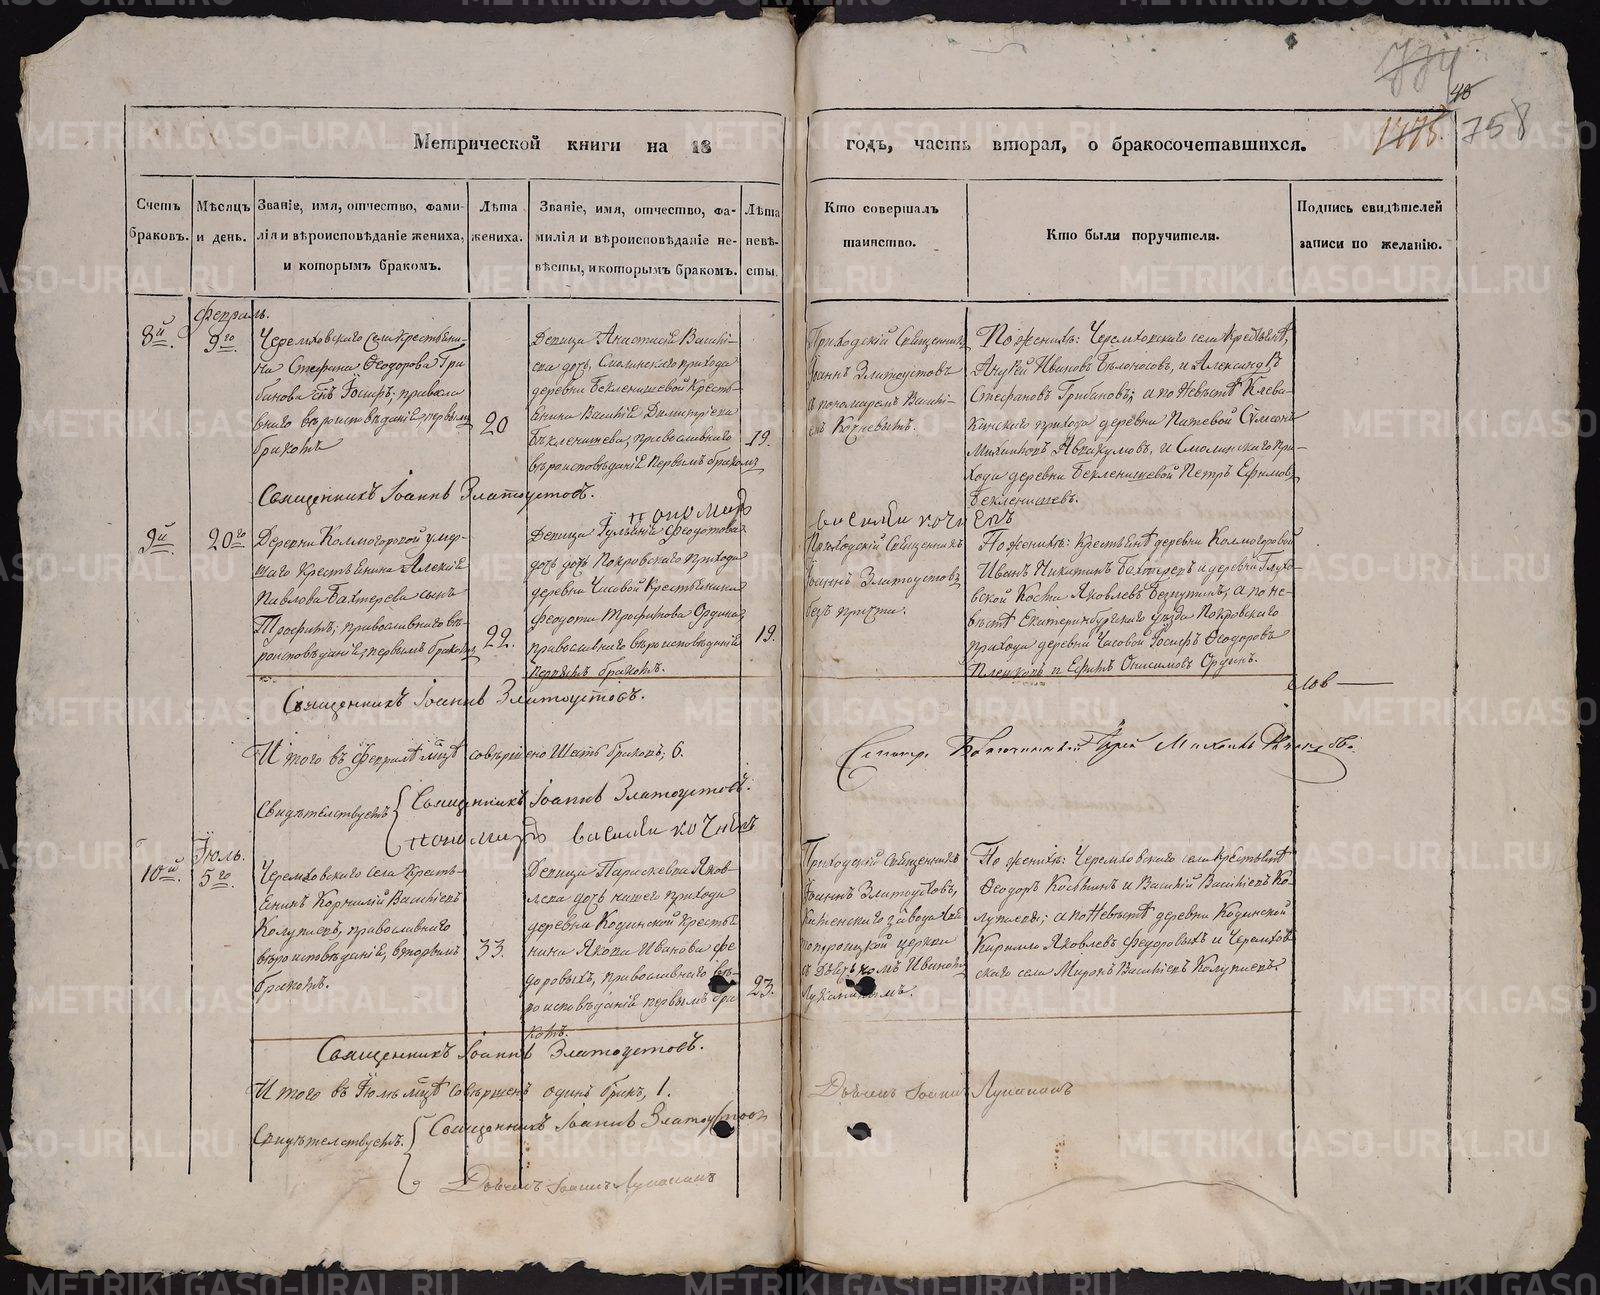 774
48
1775. 758
Метрической книги на 18 годъ, часть вторая, о бракосочетавшихся.
Счетъ браковъ.
Мѣсяцъ и день.
Званіе, имя, отчество, фами-
лія и вѣроисповѣданіе жениха,
и которымъ бракомъ.
Лѣта
жениха.
Званіе, имя, отчество, фа-
милія и вѣроисповѣданіе не-
вѣсты, и которымъ бракомъ.
Лѣта
невѣ-
сты.
Кто совершалъ
таинство.
Кто были поручители.
Подпись свидѣтелей
записи по желанію.
Февраль.
8й.
9го.
Черемховскаго села крестьяни-
на Стефана Ѳеодорова Гри
банова сынъ Іосифъ; правосла
внаго вѣроисповѣданія, первымъ
бракомъ
20
Девица Анастасія Василі-
ева дочь, Смолинскаго прихода
деревни Бекленищевой Кресть-
янина Василія Димитріева
Бекленищева, православнаго
вѣроисповѣданія первымъ бракомъ
19.
Приходскій Священникъ
Іоаннъ Златоустовъ
съ пономаремъ Василі-
емъ Кочневымъ.
По женихѣ: Черемховскаго села крестьяне,
Андрей Ивановъ Бѣлоносовъ, и Александръ
Стефановъ Грибановъ; а по невѣстѣ Клева-
кинскаго прихода деревни
Аввакумовъ, и Смолинскаго при-
хода деревни Бекленищевой Петръ Ефимовъ
Бекленищевъ.
Священникъ Іоаннъ Златоустовъ.
пономарь василий кочневъ
9й.
20го.
Деревни Колмогоровой умер-
шаго Крестьянина Алексія
Павлова Бахтерева сынъ
Трофимъ; православнаго вѣ-
роисповѣданія, первымъ бракомъ
22.
Девица Іуліанія Ѳеодотова
дочь Покровскаго прихода
деревни Часовой Крестьянина
Ѳеодота Трофимова Ордина,
православнаго вѣроисповѣданія
первымъ бракомъ.
19.
Приходскій Священникъ
Іоаннъ Златоустовъ
безъ причта.
По женихѣ: крестьяне деревни Колмогоровой
Иванъ Никитинъ Бахтеревъ и деревни Глухо-
вской Яковлевъ а по не-
вѣстѣ Екатеринбургскаго уѣзда Покровскаго
прихода деревни Часовой Іосифъ Ѳеодоровъ
и Ефимъ Онисимовъ Ординъ.
Священникъ Іоаннъ Златоустовъ.
Итого въ Февралѣ мцѣ совершено шесть браковъ, 6.
Свидѣтельствуемъ
Священникъ Іоаннъ Златоустовъ.
пономарь василий кочневъ
Іюль.
10й.
5го.
Черемховскаго села Кресть-
янинъ Корнилій Василіевъ
Колупаевъ, православнаго
вѣроисповѣданія, вторымъ
бракомъ.
33.
Девица Параскевва Яков-
лева дочь нашего прихода
деревни Кодинской Кресть
нина Якова Иванова Фе
доровыхъ, православнаго вѣ-
роисповѣданія первымъ бра
комъ.
23.
Приходскій священникъ
Іоаннъ Златоустовъ,
Каменскаго завода
троицкой церкви
съ Дьячкомъ Иваномъ
Лукановымъ.
По женихѣ: Черемховскаго села Крестьяне
Ѳеодоръ и Василій Василіевъ Ко-
лупаевы; а по невѣстѣ деревни Кодинской
Кирилло Яковлевъ Федоровыхъ и Черемхов
скаго села Миронъ Василіевъ Колупаевъ.
Священникъ Іоаннъ Златоустовъ.
Итого въ Іюлѣ мцѣ совершенъ одинъ бракъ, 1.
Свидѣтельствуемъ.
Священникъ Іоаннъ Златоустовъ
METRIKI.GASO-URAL.RU